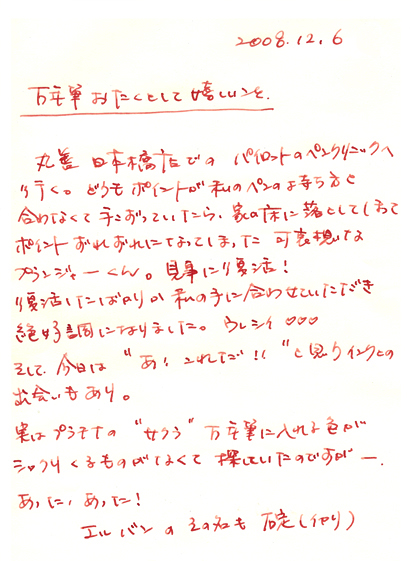 2008.12.6
万年筆おたくとして嬉しいこと.
丸善 日本橋店での パイロットのペンクリニックへ
行く。どうも ポイントが私のペンの持ち方と
合わなくて手こずっていたら、家の床に落としてしまって
ポイントおれおれになってしまった 可哀想な
プランジャーくん。見事に復活！
復活したばかりか 私の手に合わせていただき
絶好調になりました。ウレシイ♡♡♡
そして、今日は “あ！これだ！！”と思うインクとの
出会いもあり。
実はプラチナの “サクラ” 万年筆に入れる色が
シックリくるものがなくて 探していたのですがー.
あった、あった！
エルバンの その名も